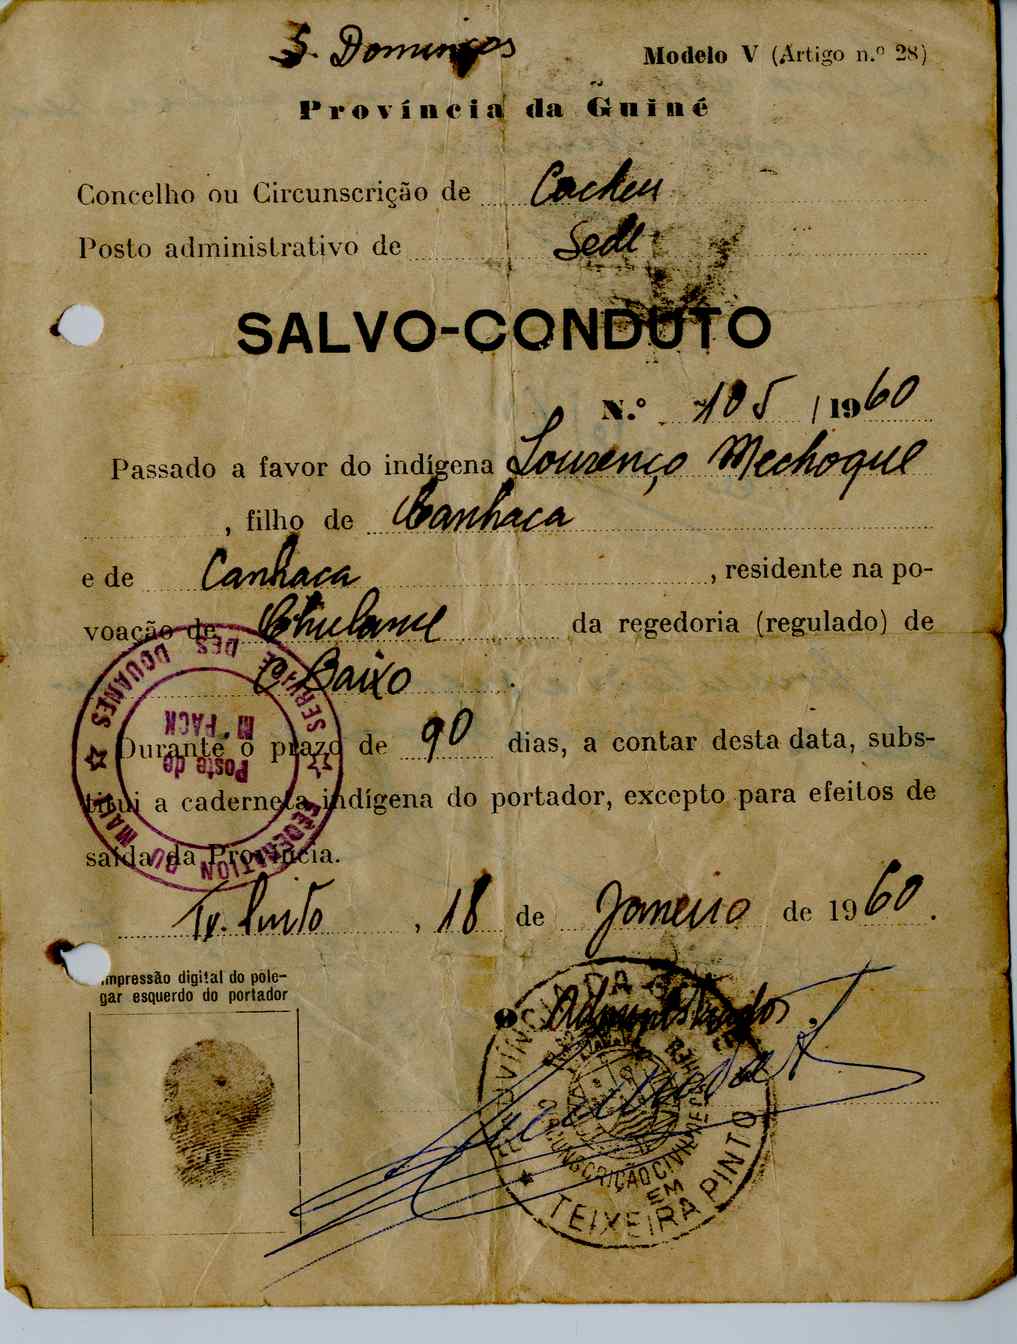 S. Domingos
Modelo V (Artigo n.º 28)
Província da Guiné
Concelho ou Circunscrição de Cacheu
Posto administrativo de Sede
SALVO-CONDUTO
N.º 105 / 1960
Passado a favor do indígena Lourenço Mechoque
, filho de Canhaca
e de Canhaca , residente na po-
voação de Chulame da regedoria (regulado) de
C. Baixo .
Durante o prazo de 90 dias, a contar desta data, subs-
titui a caderneta indígena do portador, excepto para efeitos de
saída da Província.
SERVICE DES DOUANES
FÉDÉRATION DU MALI
Poste de
M'PACK
Tx. Pinto , 18 de Janeiro de 1960.
Impressão digital do pole-
gar esquerdo do portador
O Administrador,
PROVÍNCIA DA
CIRCUNSCRIÇÃO CIVIL
EM
TEIXEIRA PINTO